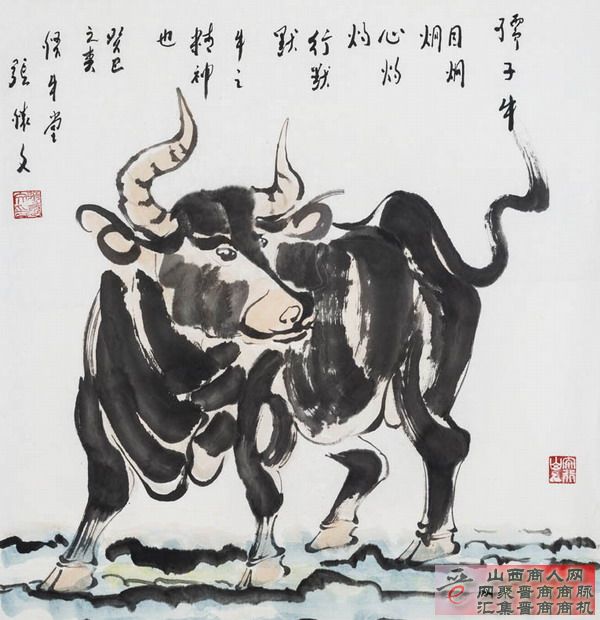 孺子牛
目炯
炯
心灼
灼
行默
默
牛之
精神
也
癸巳
之
牛堂
張 文
山西商人网
网聚晋商商脉
汇集晋商商机